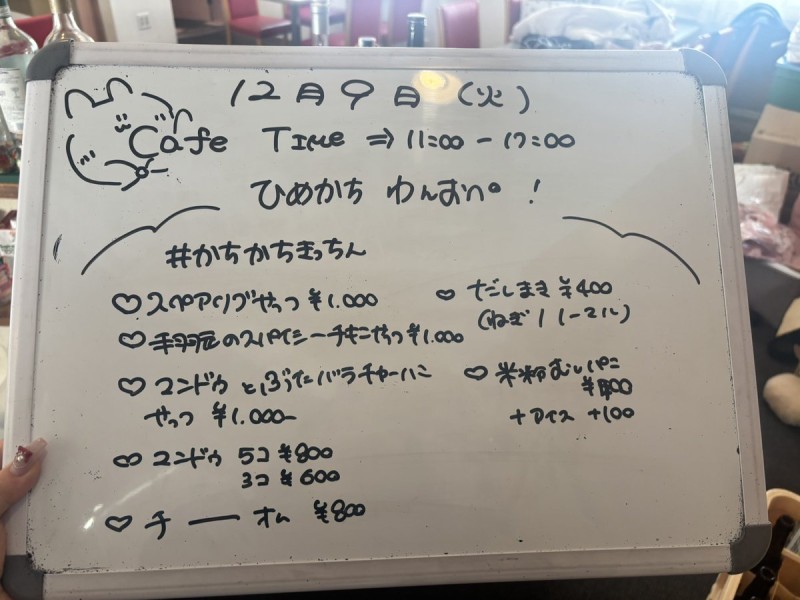 12月9日(火)
Cafe TIME ⇒ 11:00 - 17:00
ひめかち わんおぺ!
#かちかちきっちん
♡ スペアリブやっつ ¥1.000
♡ 手羽元のスパイシーチキンやっつ ¥1.000
♡ マンドゥ とぶたバラチャーハン
やっつ ¥1.000-
♡ マンドゥ 5コ ¥800
3コ ¥600
♡ チ ー オム ¥800
♡ だしまき ¥400
(ねぎ / ノーマル)
♡ 米粉むしパン
+アイス +100